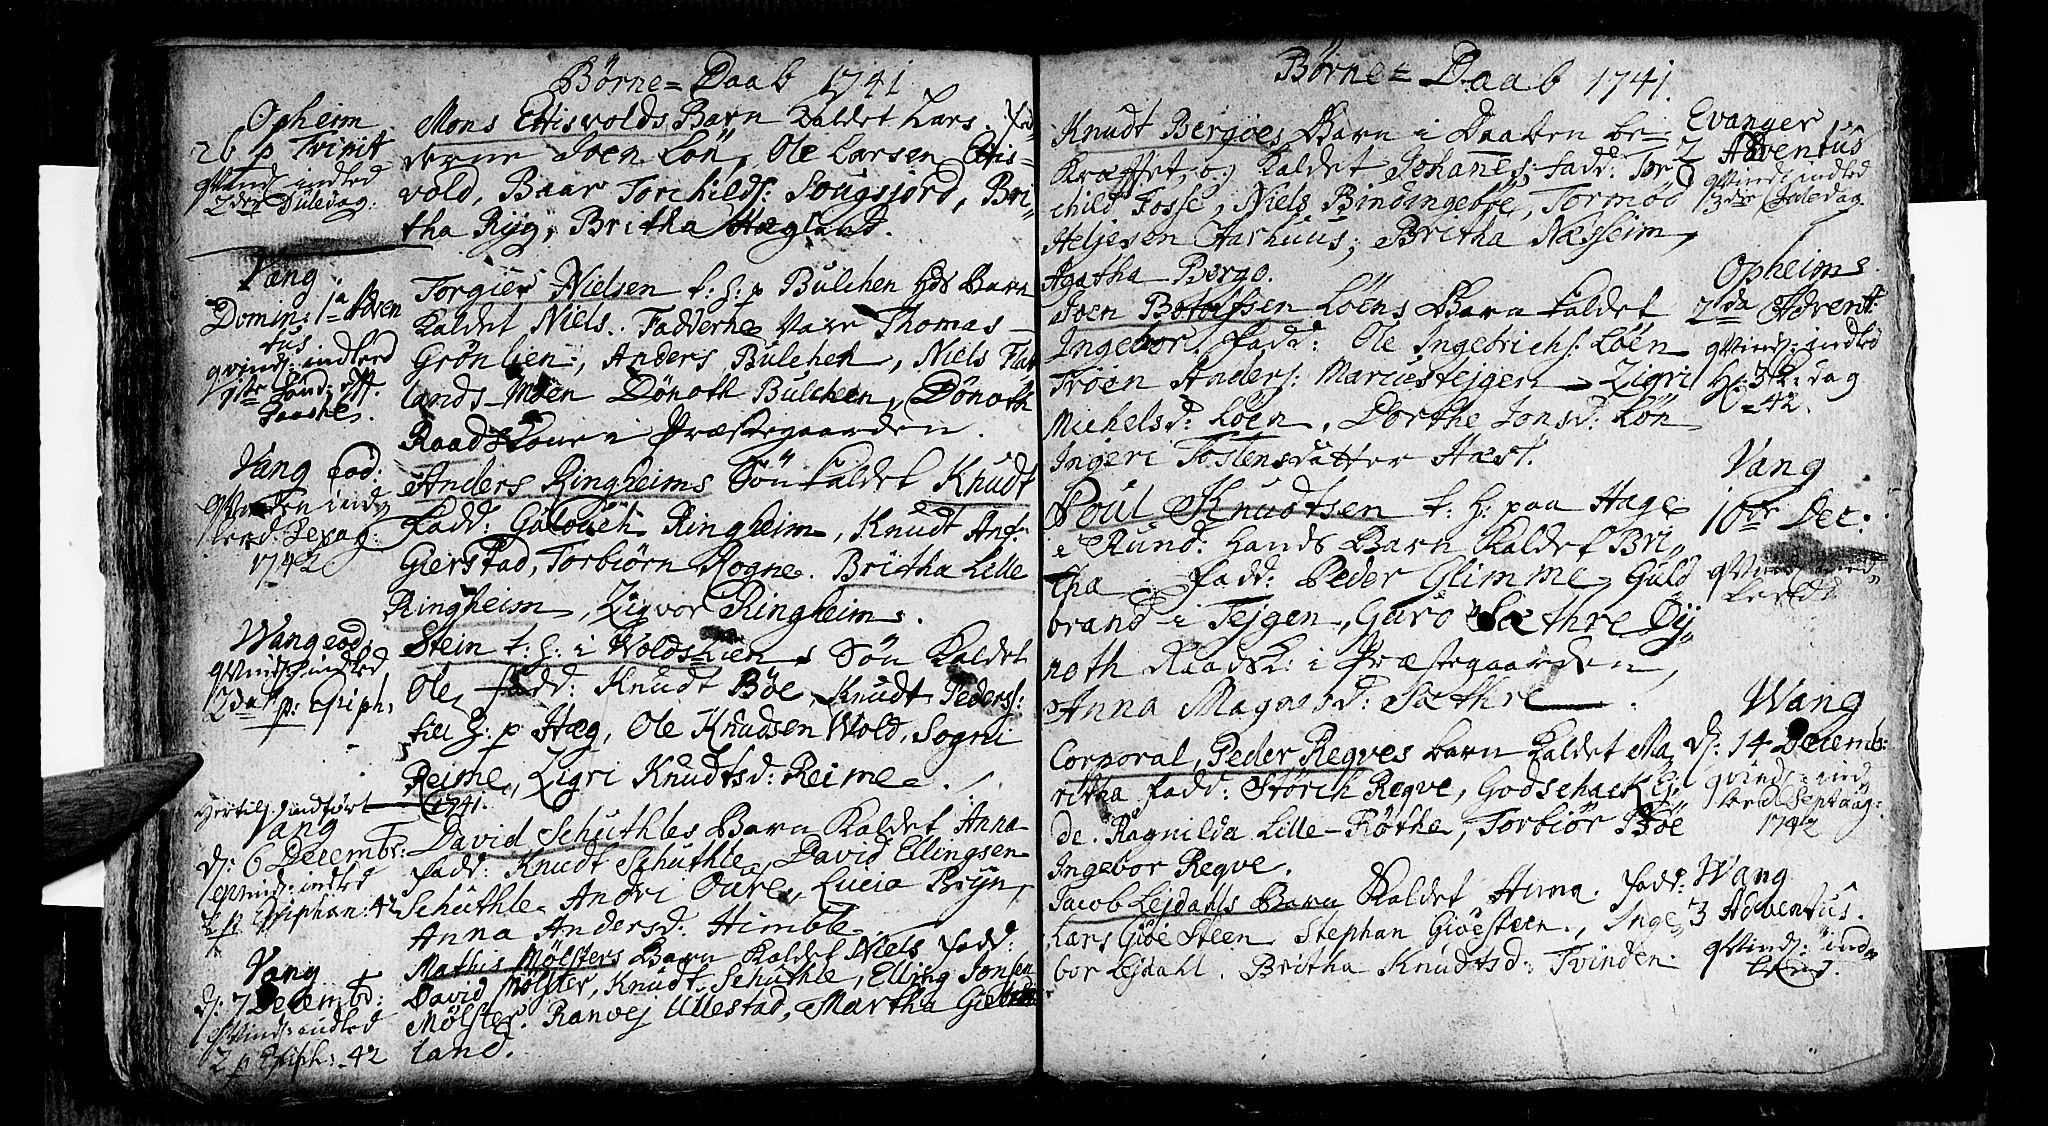 Børne=Daab 1741
Opheim
26 p Trinit
qvind: indled
2den Juledag:
Mons Ettisvolds Barn Kaldet Lars. Fad
derne Joen Lön, Ole Larsen Ettis=
vold, Baar Torchilds: Sougsjord, Bri=
tha Ryg, Britha Hæglaat.
Vang
Domin: 1a Adven
tus
qvind: indleed
Torgier Nielsen t: h: p Bulchen Hds Barn
Kaldet Niels. Fadderne Vare Thomas
Grönlien, Anders Bulchen, Niels Flat
lands-Moen Dönoth Bulchen, Dönoth
Raadskone i Præstegaarden.
Vang eod:
1742
Anders Ringheims Sön kaldet Knudt
Fadd: Guloueh Ringheim, Knudt And:
Gierstad, Torbiörn Rogne. Britha Lille
Ringheim, Zigvor Ringheim.
Wang eod:
qvind: indled
2da p: Epiph:
Stein t: h: i Woldshiens Sön Kaldet
Ole, fadd: Knudt Böe, Knudt Peders:
til h: p Hæg, Ole Knudsen Wold, Sogni
Reime, Zigri Knudtsd: Reime.
1741.
Vang
d: 6 Decembr:
qvind: indled
2 p Epiphan: 42
David Schuthles Barn Kaldet Anna
fadd: Knudt Schuthle, David Ellingsen
Schuthle Andri Ouale, Lucia Bryn,
Anna Andersd: Himle.
Vang
d: 7 Decembr:
qvind: indled
2 p Epiph: 42
Mathis Mölsters Barn Kaldet Niels fadd:
David Mölster, Knudt Schuthle, Elling Jonsen
Mölster. Ranvej Ullestad, Martha
land.
Børne=Daab 1741.
Knudt Bergöes Barn i Daaben be=
kræftet, og Kaldet Johanes. fadd: Tor
child Fosse, Niels Bindingebøe, Tormod
Heljesen Aarhuus, Britha Næsheim,
Agatha Bergo.
Evanger
2 Adventus
qvind: indled
3die Juledag.
Joen Botolfsen Löens Barn kaldet
Ingebor. Fadd: Ole Ingebrichs: Löen
Tröen Anders: Marcustejgen, Zigri
Michelsd: Löen, Dorthe Jonsd: Lön
Ingeri Tostensdatter Hæst.
Opheims
2da Advent:
qvind: indled
H: 3 K: dag
42.
Poul Knudtsen t: h: paa Hage
i Rund: Hands Barn Kaldet Bri=
tha. fadd: Peder Glimme, Guld
brand i Tejgen, Guro Sæthre Dy=
noth Raadsk: i Præstegaarden,
Anna Magnesd: Sæthre.
Vang
10de Dec:
qvind: ind=
Corporal, Peder Reqves barn Kaldet Ma
ritha fadd: Störch Reqve, Godschalk Ej
de. Ragnilda Lille-Röthe, Torbiör Böe
Ingebor Reqve.
Wang
d: 14 Decemb:
qvind: ind
led Septuag:
1742
Jacob Lejdahls Barn Kaldet Anna. fadd:
Lars Giöe Steen, Stephan Giöesteen, Inge
bor Lejdahl. Britha Knudtsd: Tvinden.
Wang
3 Adventus.
qvind: ind=